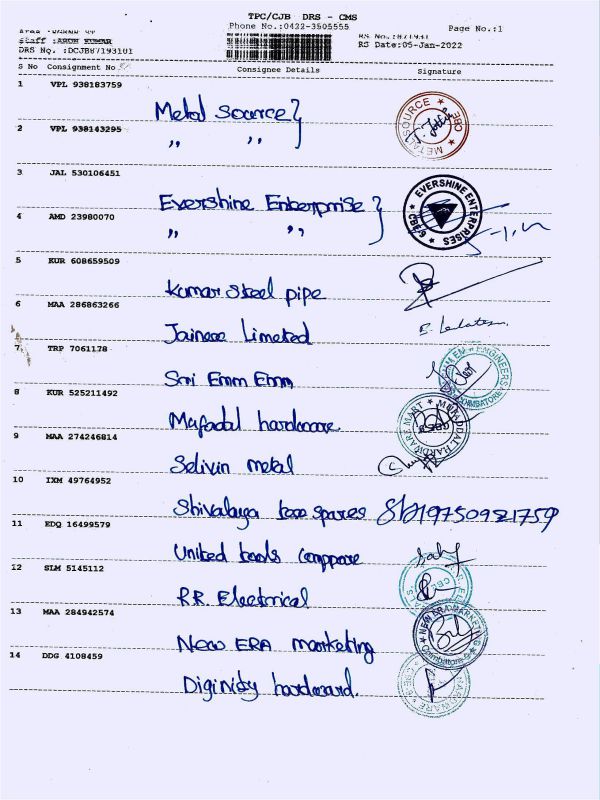 TPC/CJB DRS - CMS
Phone No.:0422-3505555
Page No.:1
Staff :ARUN KUMAR
DRS No. :DCJB87193101
RS Date:05-Jan-2022
S No Consignment No Consignee Details Signature
1 VPL 938183759
Metal source
2 VPL 938143295
,, ,,
METAL SOURCE ★ CBE ★
3 JAL 530106451
Evershine Enberprise
4 AMD 23980070
,, ,,
★ EVERSHINE ENTERPRISES ★ CBE-9
5 KUR 608659509
Kumar steel pipe
6 MAA 286863266
Jainece Limeted
7 TRP 7061178
Sri Emm Emm
ENGINEERS
COIMBATORE
8 KUR 525211492
Mufadal hardware
MUFADDAL HARDWARE MART ★
9 MAA 274246814
Selivin metal
10 IXM 49764952
Shivalaya spares 9750921759
11 EDQ 16499579
United tools
12 SLM 5145112
R.R. Electrical
13 MAA 284942574
New ERA marketing
NEW ERA MARKETING
Coimbatore-9
14 DDG 4108459
Diginidy hardward.